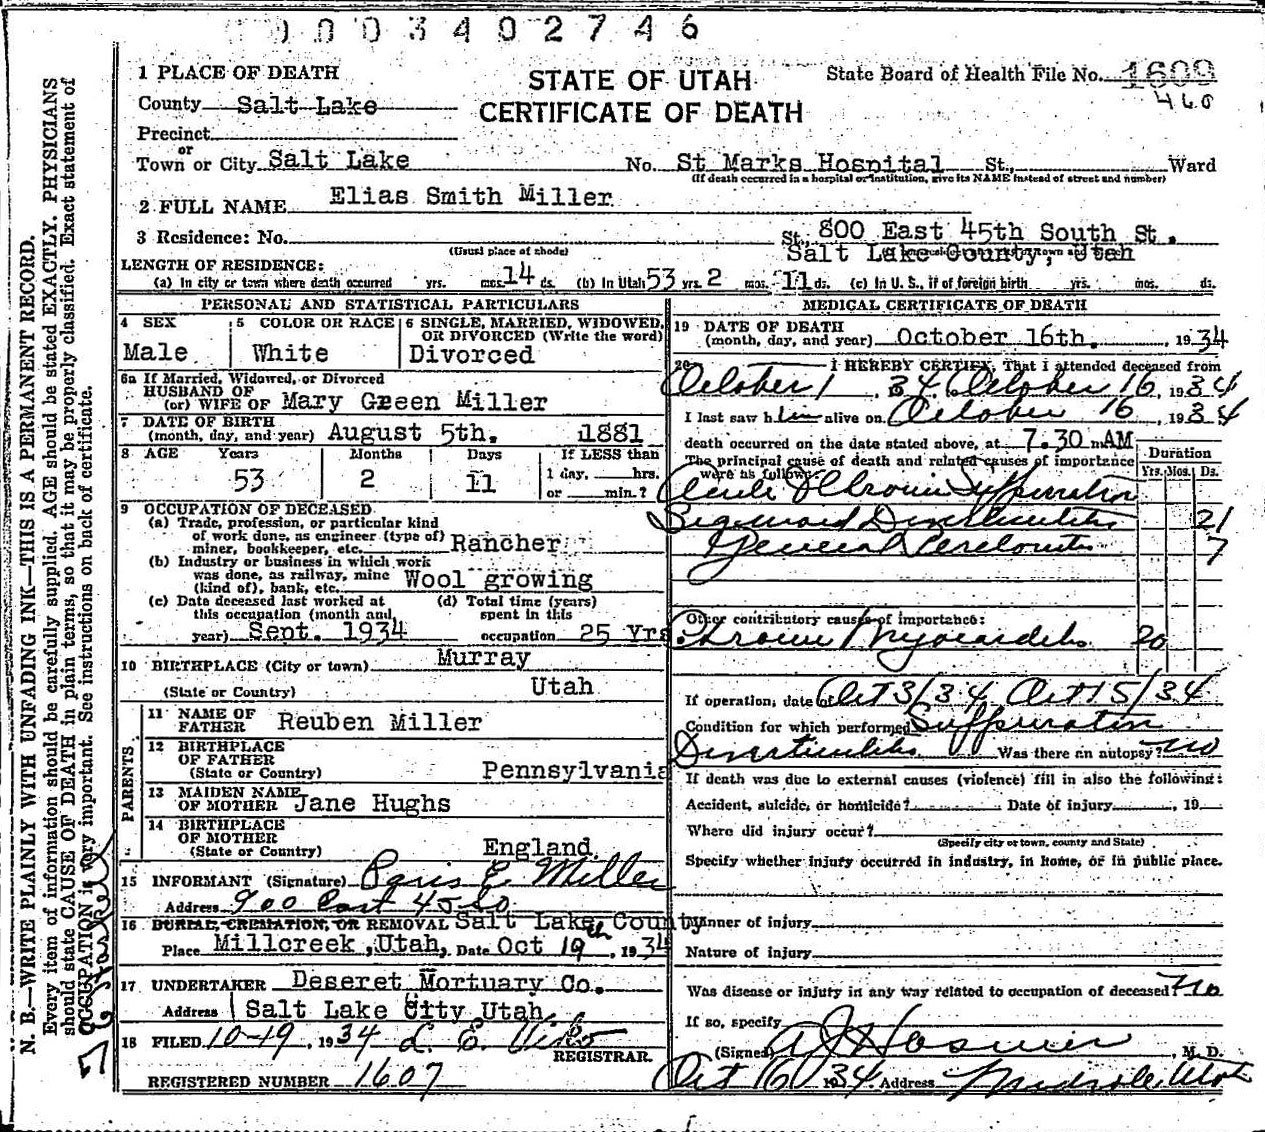 0003402746
1 PLACE OF DEATH
STATE OF UTAH
CERTIFICATE OF DEATH
State Board of Health File No. 1609
460
County Salt Lake
Precinct
or
Town or City Salt Lake No. St Marks Hospital St., Ward
(If death occurred in a hospital or institution, give its NAME instead of street and number)
2 FULL NAME Elias Smith Miller
3 Residence: No. St., 800 East 45th South St.
(Usual place of abode) Salt Lake County, Utah
LENGTH OF RESIDENCE:
(a) In city or town where death occurred yrs. mos. 14 ds. (b) In Utah 53 yrs. 2 mos. 11 ds. (c) In U. S., if of foreign birth yrs. mos. ds.
PERSONAL AND STATISTICAL PARTICULARS
4 SEX 5 COLOR OR RACE 6 SINGLE, MARRIED, WIDOWED, OR DIVORCED (Write the word)
Male White Divorced
6a If Married, Widowed, or Divorced
HUSBAND OF
(or) WIFE OF Mary Green Miller
7 DATE OF BIRTH
(month, day, and year) August 5th. 1881
8 AGE Years Months Days If LESS than
53 2 11 1 day, hrs.
or min.?
9 OCCUPATION OF DECEASED
(a) Trade, profession, or particular kind
of work done, as engineer (type of)
miner, bookkeeper, etc. Rancher
(b) Industry or business in which work
was done, as railway, mine
(kind of), bank, etc. Wool growing
(c) Date deceased last worked at (d) Total time (years)
this occupation (month and spent in this
year) Sept. 1934 occupation 25 Yrs.
10 BIRTHPLACE (City or town) Murray
(State or Country) Utah
PARENTS
11 NAME OF
FATHER Reuben Miller
12 BIRTHPLACE
OF FATHER
(State or Country) Pennsylvania
13 MAIDEN NAME
OF MOTHER Jane Hughs
14 BIRTHPLACE
OF MOTHER
(State or Country) England
15 INFORMANT (Signature) Paris E. Miller
Address 900 East 45 So
16 BURIAL, CREMATION, OR REMOVAL Salt Lake County
Place Millcreek, Utah, Date Oct 19th, 1934
17 UNDERTAKER Deseret Mortuary Co.
Address Salt Lake City Utah
18 FILED 10-19, 1934 L. E. Viko
REGISTRAR.
REGISTERED NUMBER 1607
MEDICAL CERTIFICATE OF DEATH
19 DATE OF DEATH
(month, day, and year) October 16th. , 1934
20 I HEREBY CERTIFY, That I attended deceased from
October 1, 34, October 16, 1934
I last saw him alive on October 16 1934
death occurred on the date stated above, at 7.30 m AM
The principal cause of death and related causes of importance
were as follows:
Duration
Yrs. Mos. Ds.
Acute & Chronic Suppurative
Sigmoid Diverticulitis 21
General Peritonitis 7
Other contributory causes of importance:
Chronic Myocarditis 20
If operation, date of Oct 3/34, Oct 15/34
Condition for which performed Suppurative
Diverticulitis Was there an autopsy? no
If death was due to external causes (violence) fill in also the following:
Accident, suicide, or homicide? Date of injury , 19
Where did injury occur?
(Specify city or town, county and State)
Specify whether injury occurred in industry, in home, or in public place.
Manner of injury
Nature of injury
Was disease or injury in any way related to occupation of deceased? no
If so, specify
(Signed) A J Hosmer, M. D.
Oct 16 1934 Address Midvale, Utah
N. B.—WRITE PLAINLY WITH UNFADING INK—THIS IS A PERMANENT RECORD.
Every item of information should be carefully supplied. AGE should be stated EXACTLY. PHYSICIANS
should state CAUSE OF DEATH in plain terms, so that it may be properly classified. Exact statement of
OCCUPATION is very important. See instructions on back of certificate.